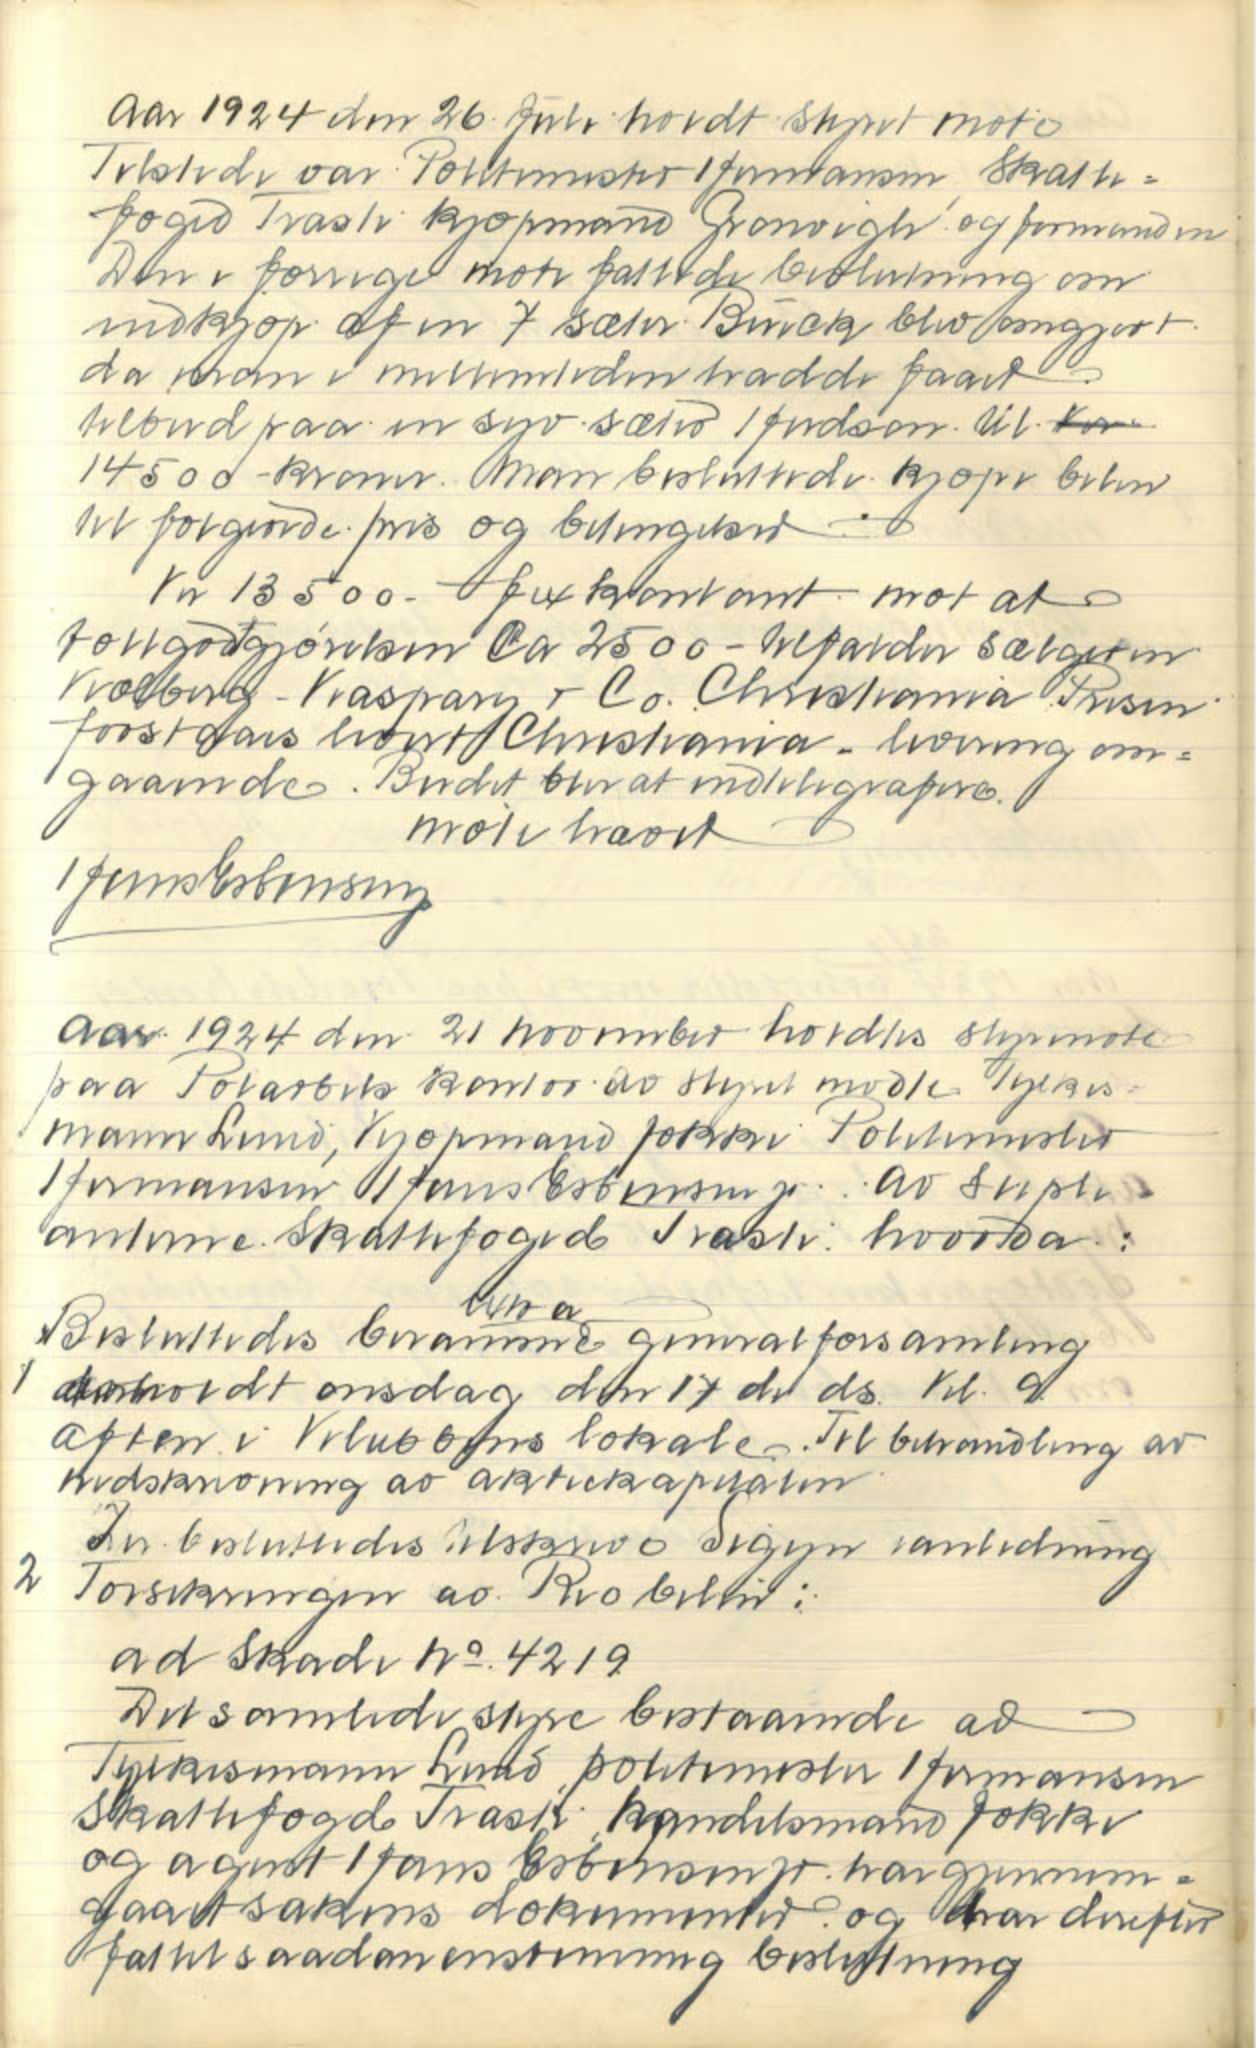 Aar 1924 den 26. Juli holdt styret møte
Tilstede var Politimester Hermansen, Skatte=
foged Trasti kjøpmand Grønvigh og formanden
Den i forrige møte fattede beslutning om
indkjøp af en 7 sæter Buick blev omgjort
da man i mellemtiden hadde faaet
tilbud paa en syv sæter Hudson til Kr
14500 - kroner. Man besluttede kjøpe bilen
til følgende pris og betingelser
Kr 13500 - fix kontant mot at
toldgodtgjørelsen Ca 2500 - tilfalder sælgeren
Kolberg - Kaspary + Co. Christiania Prisen
forstaaes levert Christiania - levering om=
gaaende. Budet blev at indtelegrafere.
møte hævet
Hans Esbensen jr
Aar 1924 den 21 november holdtes styremøte
paa Polarbils kontor. Av styret mødte Fylkes-
mann Lund, Kjøpmand Jokki Politimester
Hermansen Hans Esbensen jr. Av suple-
anterne Skattefoged Trasti. hvorda:
extra
Besluttedes beramme generalforsamling
1 avholdt onsdag den 17 de ds. Kl. 9
aften i Klubbens lokale. Til behandling av
nedskrivning av aktiekapitalen
Der besluttedes tilskrive Sigyn i anledning
2 Forsikringen av Reo bilen:
ad Skade No. 4219
Det samlede styre bestaaende av
Fylkesmann Lund, politimester Hermansen
Skattefogd Trasti, handelsmand Jokki
og agent Hans Esbensen jr. har gjennem=
gaaet sakens dokumenter og har derefter
fattet saadan enstemmig beslutning